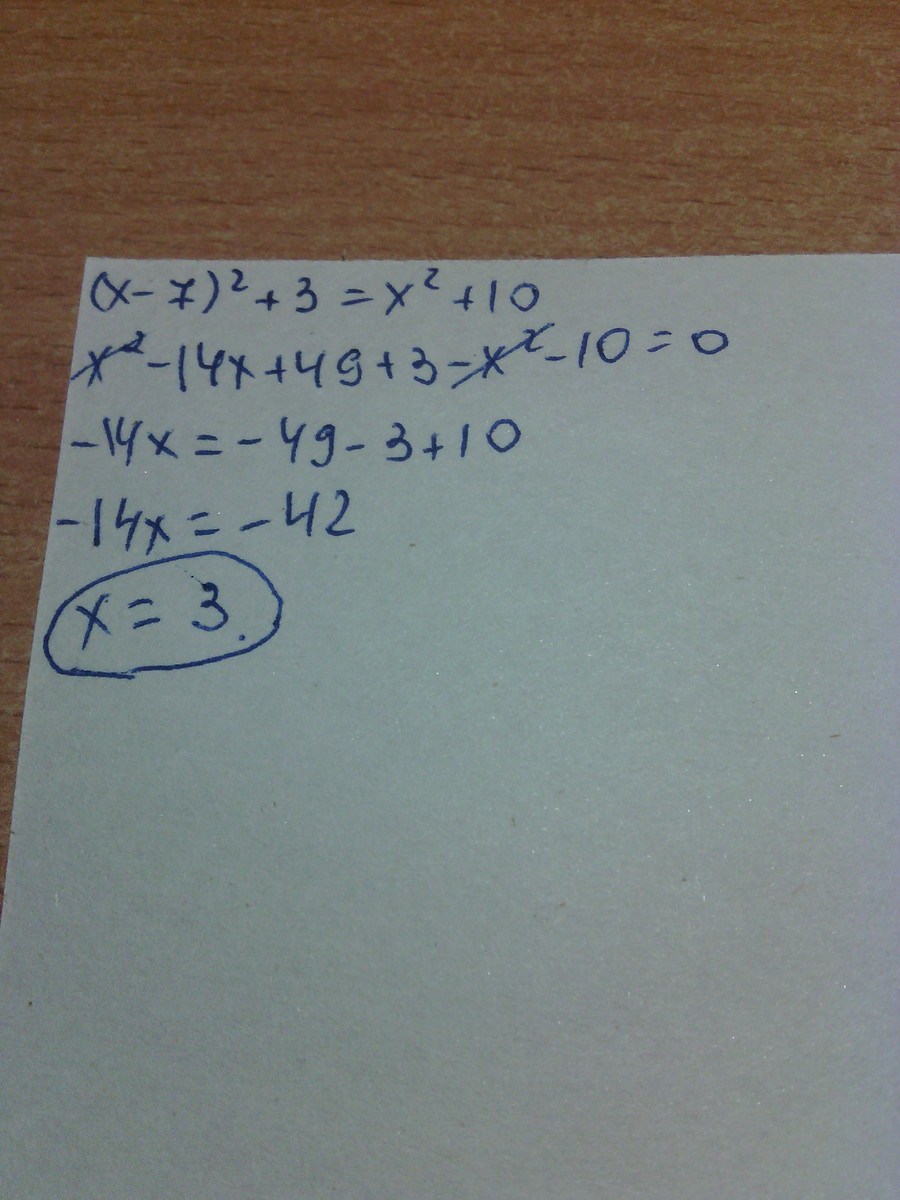 (x-7)²+3=x²+10
x²-14x+49+3-x²-10=0
-14x=-49-3+10
-14x=-42
x=3.